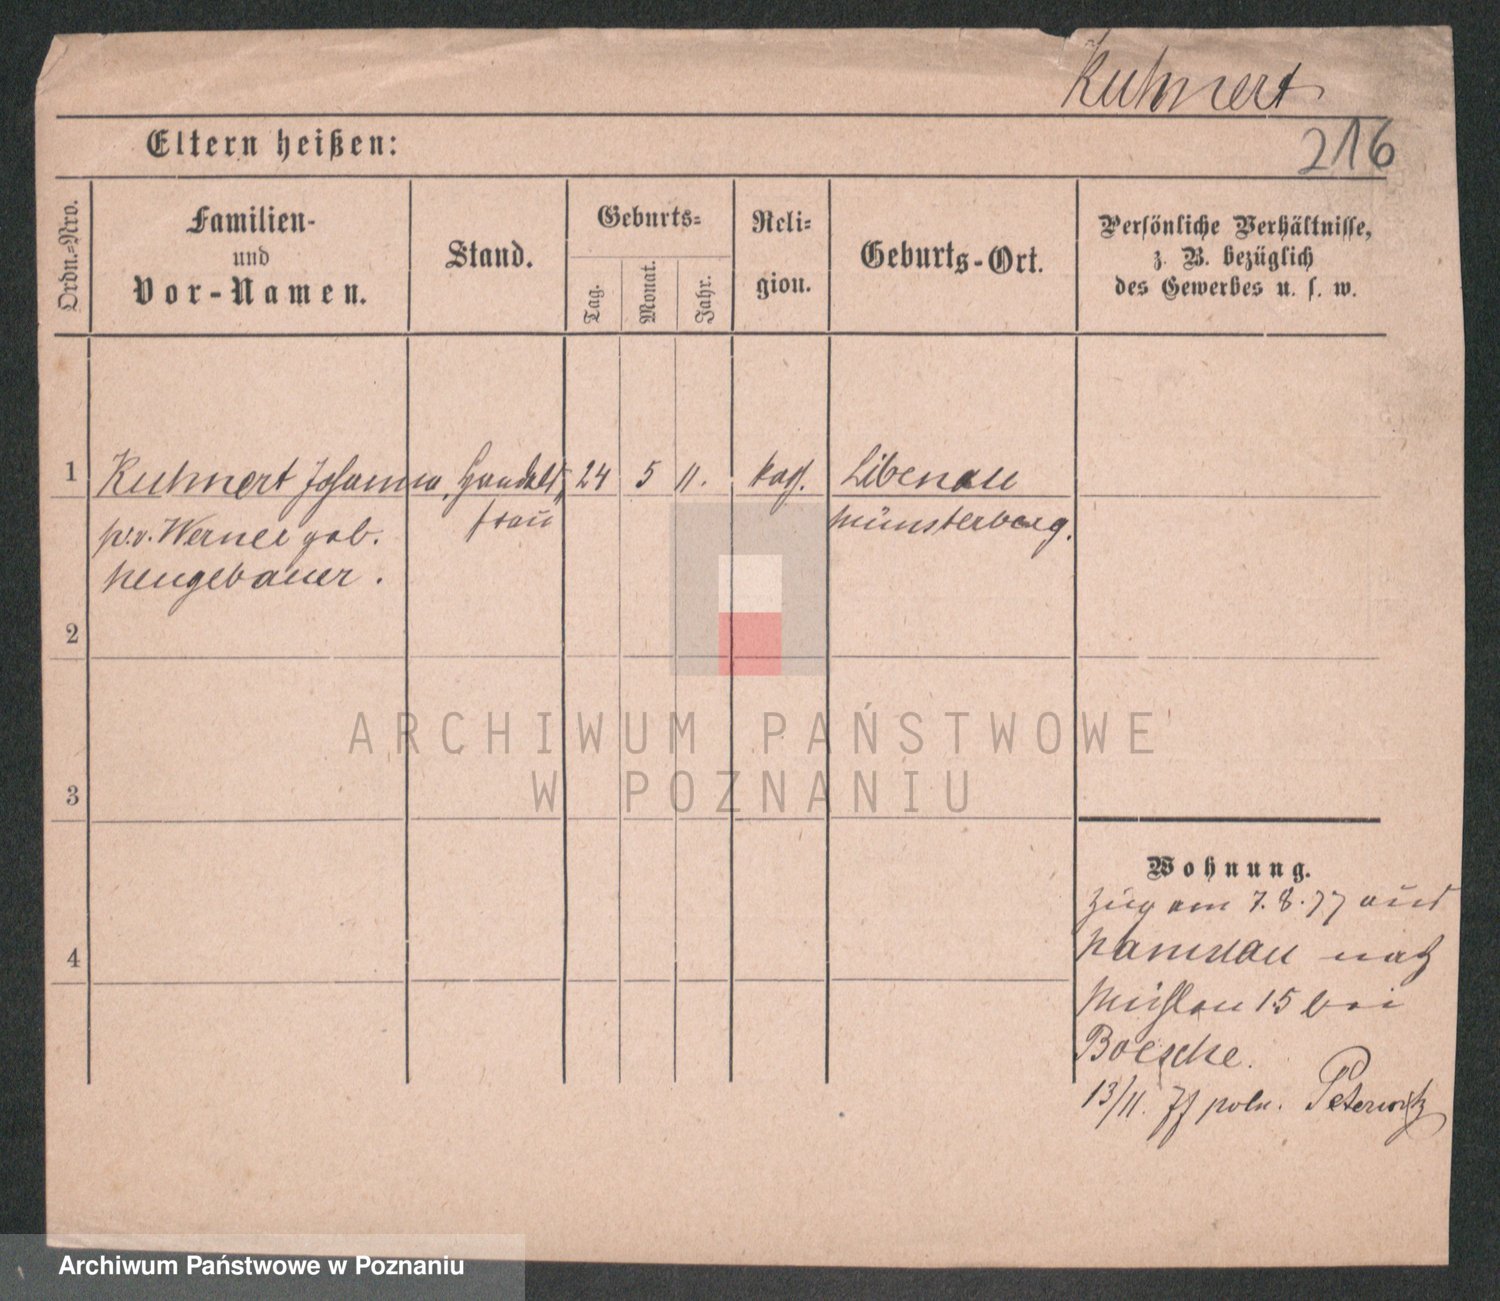 Kuhnert
216
Eltern heißen:
Ordn.-Nro.
Familien-
und
Vor-Namen.
Stand.
Geburts-
Tag.
Monat.
Jahr.
Reli-
gion.
Geburts-Ort.
Persönliche Verhältnisse,
z. B. bezüglich
des Gewerbes u. s. w.
1
Kuhnert Johanna
Handels
24
5
11.
kath.
Libenau
v. Werner geb.
frau
Münsterberg.
Neugebauer.
2
3
4
Wohnung.
Zug am 7.8.77 aus
Namslau nach
Mühlen 15 bei
Boesche.
13/11. 77 poln. Peterwitz
ARCHIWUM PAŃSTWOWE
W POZNANIU
Archiwum Państwowe w Poznaniu